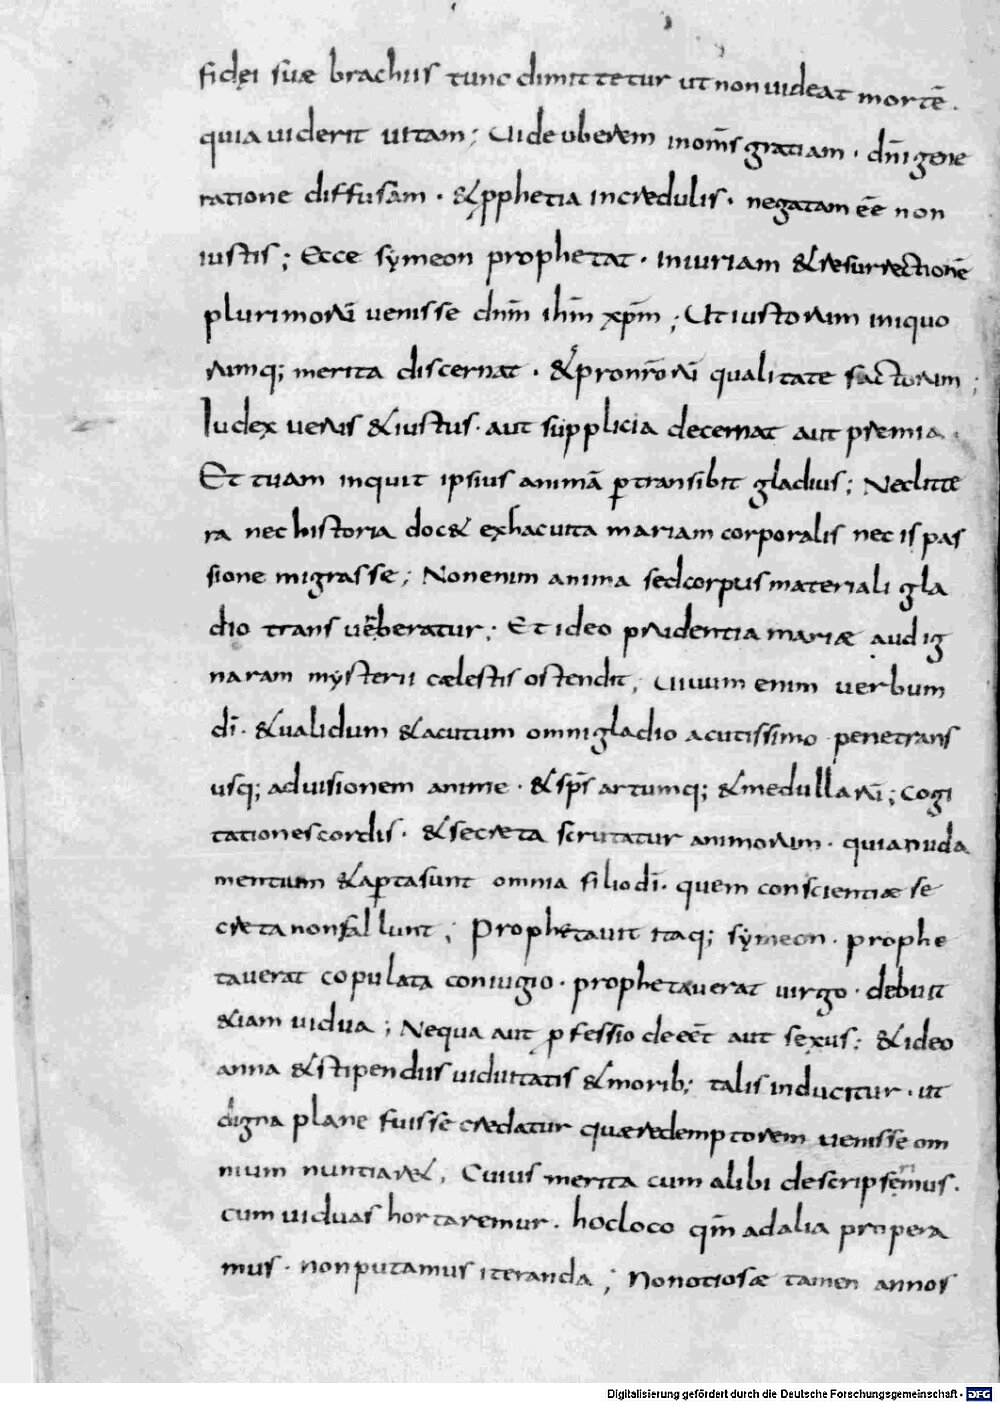 fidei suae brachiis tunc dimittetur ut non uideat mortē.
quia uiderit uitam; Uide uberem in om̄s gratiam · dn̄i gene
ratione diffusam · & pphetia incredulis · negatam ēē non
iustis; Ecce symeon prophetat · in iuriam & resurrectionē
plurimorū uenisse dn̄m ih̄m xp̄m; Ut iustorum iniquo
rumq; merita discernat · & pro nr̄orū qualitate factorum;
Iudex uerus & iustus · aut supplicia decernat aut premia ·
Et tuam inquit ipsius animā ꝑtransibit gladius; Nec litte
ra nec historia doc& ex hac uita mariam corporalis necis pas
sione migrasse; Non enim anima sed corpus materiali gla
dio transuerberatur; Et ideo prudentia mariae aud ig
naram mysterii caelestis ostendit; Uiuum enim uerbum
dī · & ualidum & acutum omni gladio acutissimo penetrans
usq; ad uisionem anime · & sps̄ artumq; & medullarū; Cogi
tationes cordis · & secreta scrutatur animorum · quia nuda
mentum & aꝑta sunt omnia filio dī · quem conscientiae se
creta non fallunt; Prophetauit itaq; symeon · prophe
tauerat copulata coniugio · prophetauerat uirgo · debuit
& iam uidua; Nequa aut ꝑfessio deeēt aut sexus; & ideo
anna & stipendiis uiduitatis & morib; talis inducitur · ut
digna plane fuisse credatur quae redemptorem uenisse om
nium nuntiar&; Cuius merita cum alibi descripserimus ·
cum uiduas hortaremur · hoc loco qm̄ ad alia propera
mus · non putamus iteranda; Non otiosae tamen annos
Digitalisierung gefördert durch die Deutsche Forschungsgemeinschaft - DFG